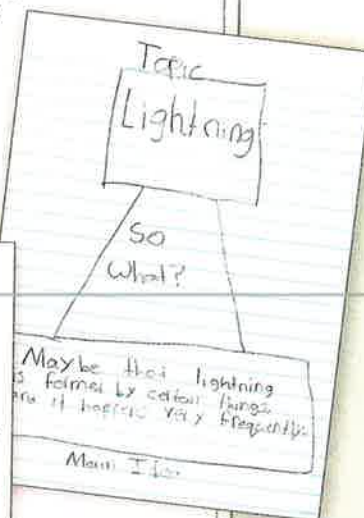 Topic
Lightning
So
What?
Maybe that lightning
is formed by certain things
and it happens very frequently.
Main Idea